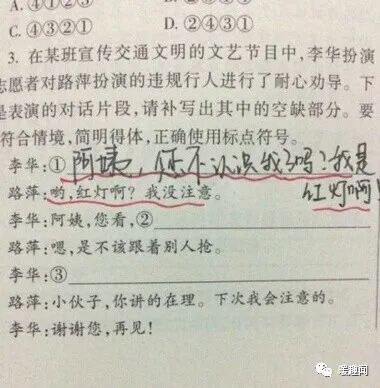 A.④①②③
C.④③②①  D.②④③①
3. 在某班宣传交通文明的文艺节目中,李华扮演
志愿者对路萍扮演的违规行人进行了耐心劝导。下
是表演的对话片段,请补写出其中的空缺部分。要
符合情境,简明得体,正确使用标点符号。
李华:①阿姨,您不认识我了吗?我是
路萍:哟,红灯啊?我没注意。 红灯啊!
李华:阿姨,您看,②
路萍:嗯,是不该跟着别人抢。
李华:③
路萍:小伙子,你讲的在理。下次我会注意的。
李华:谢谢您,再见!
暖趣闻